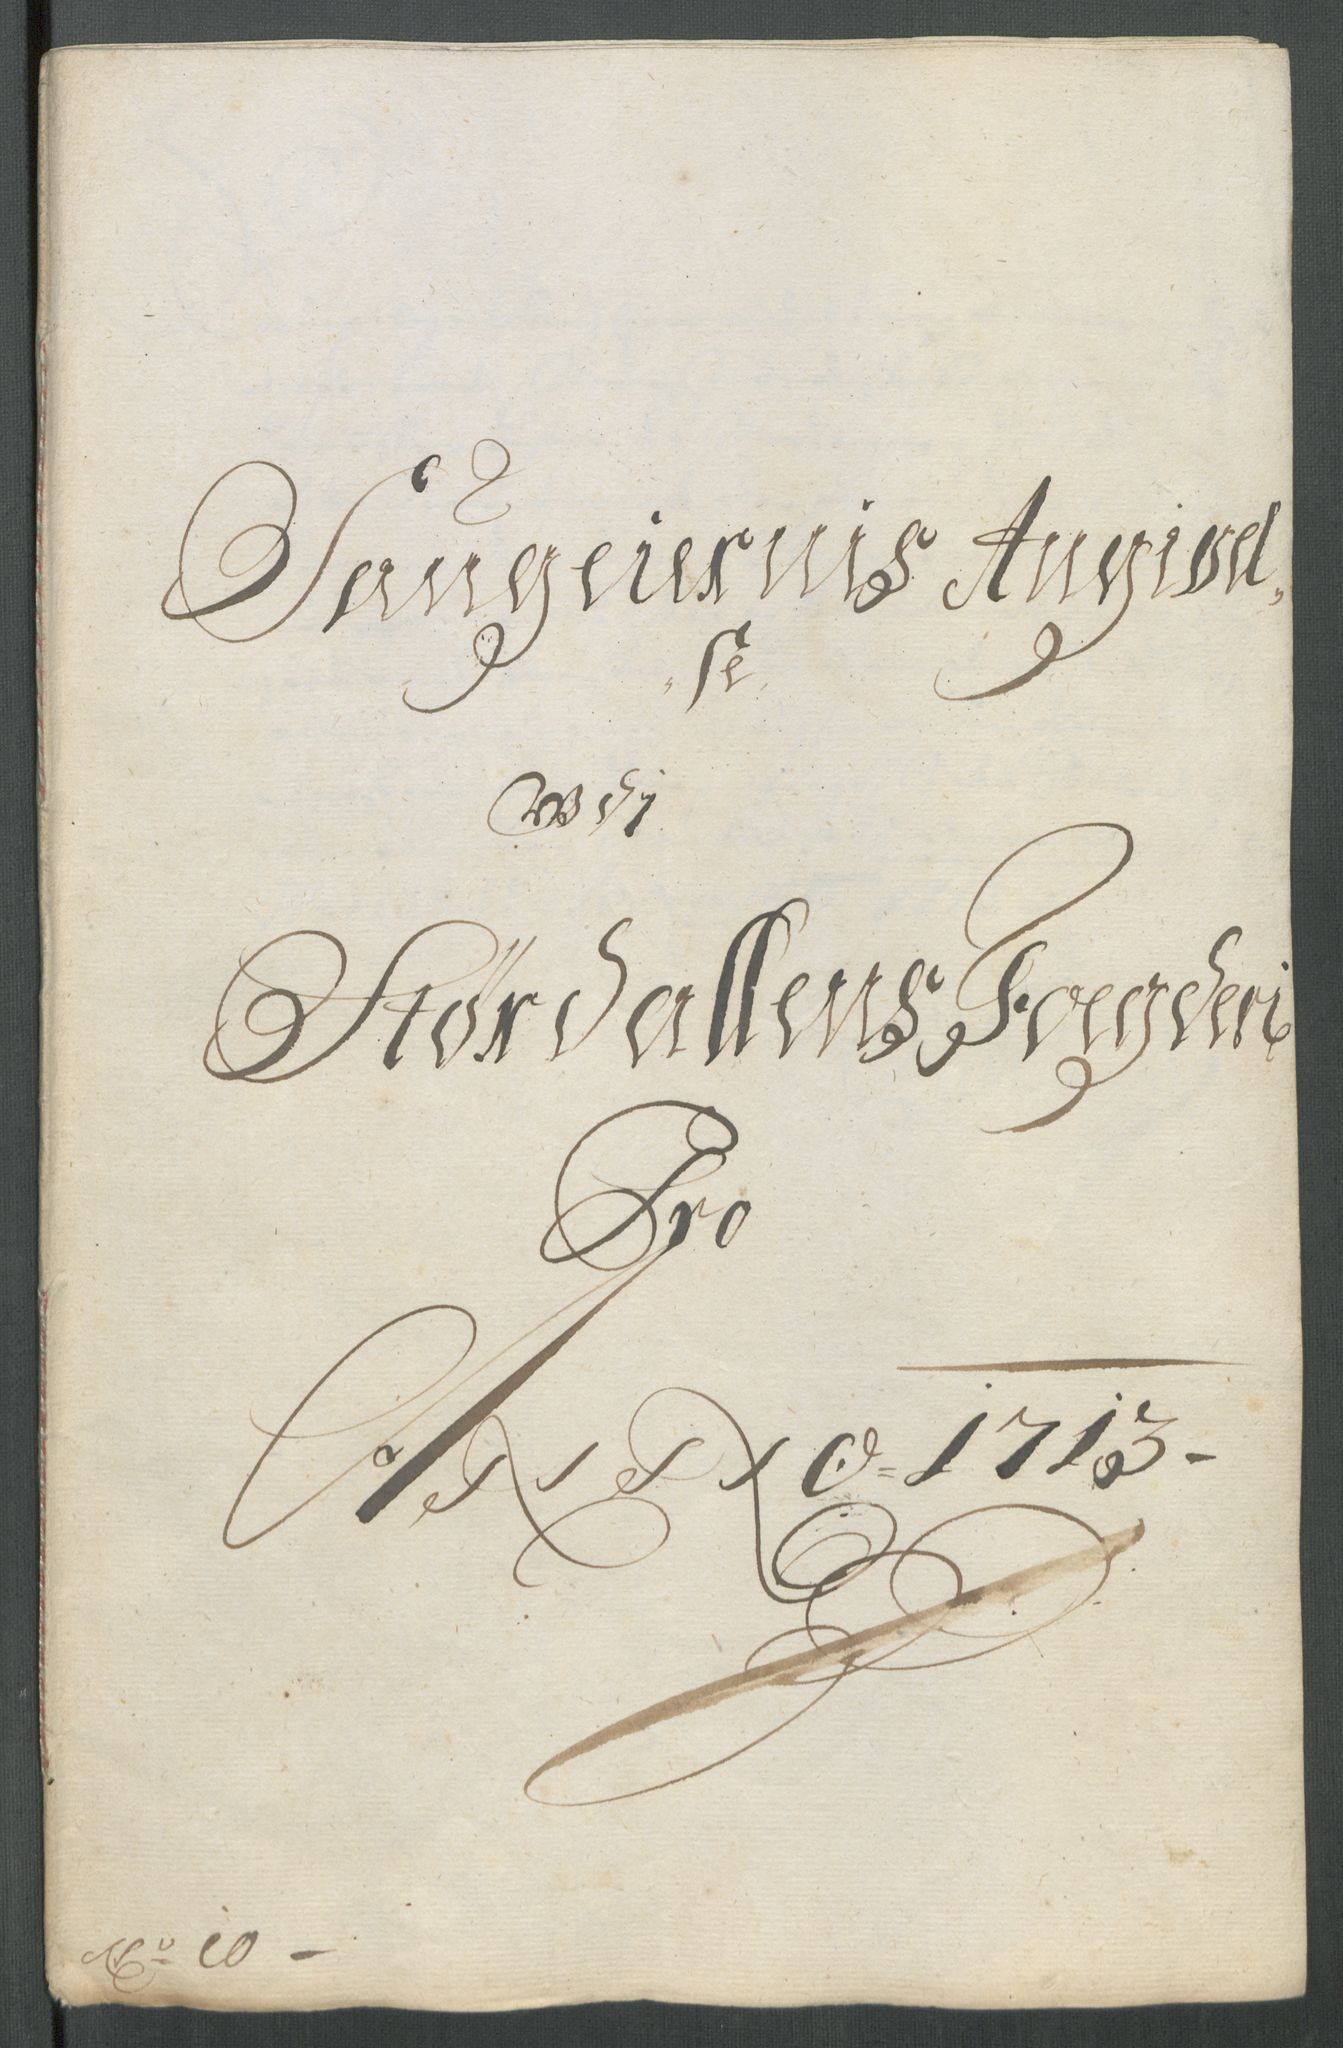 Saugeiernis Angivel,,
,, se ,,
Udj
Størdallens Fogderi
Pro
ANNO = 1713 -
No 10 -